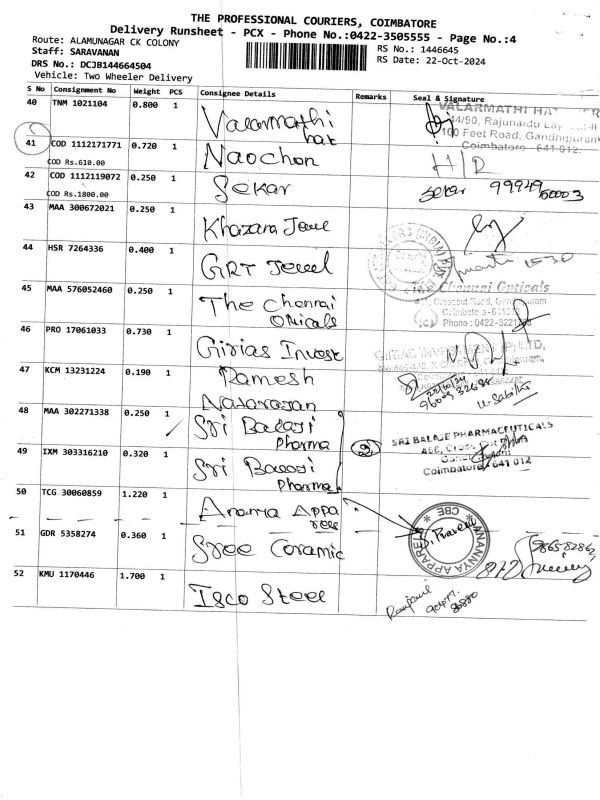 THE PROFESSIONAL COURIERS, COIMBATORE
Delivery Runsheet - PCX - Phone No.:0422-3505555 - Page No.:4
Route: ALAMUNAGAR CK COLONY
RS No.: 1446645
Staff: SARAVANAN
RS Date: 22-Oct-2024
DRS No.: DCJB144664504
Vehicle: Two Wheeler Delivery
S No Consignment No Weight PCS Consignee Details Remarks Seal & Signature
40 TNM 1021104 0.800 1 Valarmathi
VALARMATHI
44/90, Rajunaidu
100 Feet Road, Gandhipuram
Coimbatore - 641 012.
41 COD 1112171771 0.720 1 Naochon H/D
COD Rs.610.00
42 COD 1112119072 0.250 1 Sekar Sekar
COD Rs.1800.00
43 MAA 300672021 0.250 1 Khazana Jewel
44 HSR 7264336 0.400 1 GRT Jewel
45 MAA 576052460 0.250 1 The Chennai
Opticals
Chennai Opticals
Phone : 0422-3221
46 PRO 17061033 0.730 1 Girias Invest
47 KCM 13231224 0.190 1 Ramesh
Natarasan
22/10/24
48 MAA 302271338 0.250 1 Sri Balaji
Pharma
SRI BALAJI PHARMACEUTICALS
Coimbatore - 641 012
49 IXM 303316210 0.320 1 Sri Balaji
Pharma
2
50 TCG 30060859 1.220 1 Ananya Appa
rels
ANANNYA APPARELS
CBE
51 GDR 5358274 0.360 1 Sree Ceramic
52 KMU 1170446 1.700 1 Isco Steel